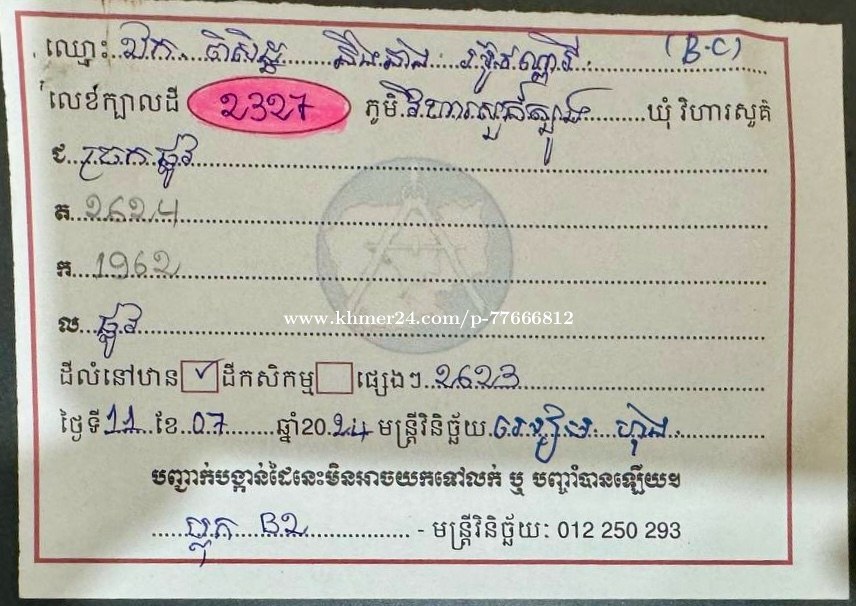 ឈ្មោះ ឯក ពិសិដ្ឋ និងនាង ម៉ូវ ណ្ណារី (B-C)
លេខក្បាលដី 2327 ភូមិ វិហារសួគ៌ត្បូង ឃុំ វិហារសួគ៌
ជ ច្រក ផ្លូវ
ត 2624
ក 1962
ល ផ្លូវ
ដីលំនៅឋាន ✓ ដីកសិកម្ម ផ្សេងៗ 2623
ថ្ងៃទី 11 ខែ 07 ឆ្នាំ20 24 មន្ត្រីវិនិច្ឆ័យ ហុង
បញ្ជាក់បង្កាន់ដៃនេះមិនអាចយកទៅលក់ ឬ បញ្ចាំបានឡើយ។
ប្លុក B2 - មន្ត្រីវិនិច្ឆ័យ: 012 250 293
www.khmer24.com/p-77666812